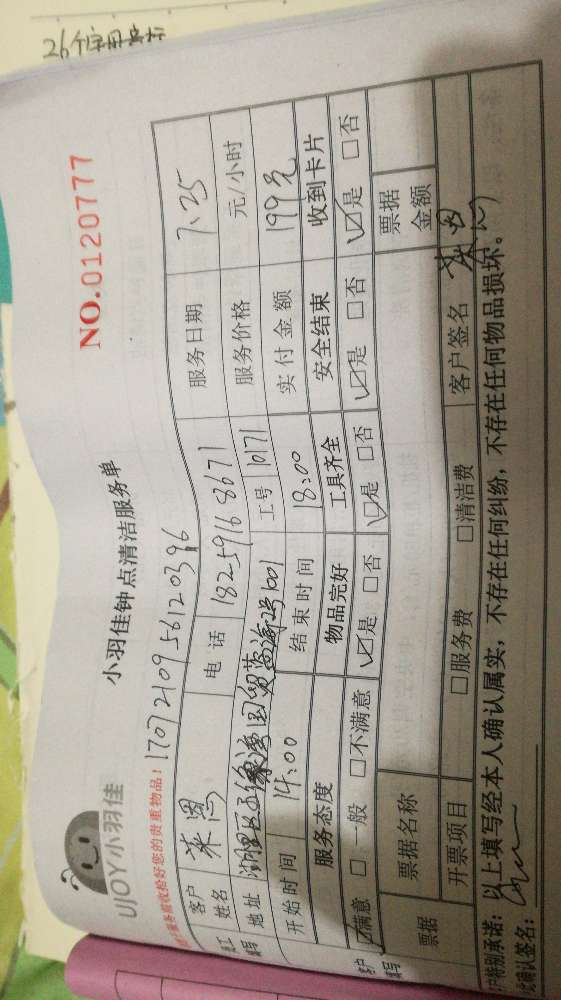 26个字母
UJOY小羽佳
小羽佳钟点清洁服务单
NO.0120777
1707210956120396
客户姓名 莱恩 电话 18259168671 服务日期 7.25
地址 工号 10171 服务价格 元/小时
开始时间 14:00 结束时间 18:00 实付金额 199元
服务态度 物品完好 工具齐全 安全结束 收到卡片
☑满意 □一般 □不满意 ☑是 □否 ☑是 □否 ☑是 □否 ☑是 □否
票据 票据名称 票据金额
开票项目 □服务费 □清洁费 客户签名 莱恩
户特别承诺:以上填写经本人确认属实,不存在任何纠纷,不存在任何物品损坏。
确认签名: